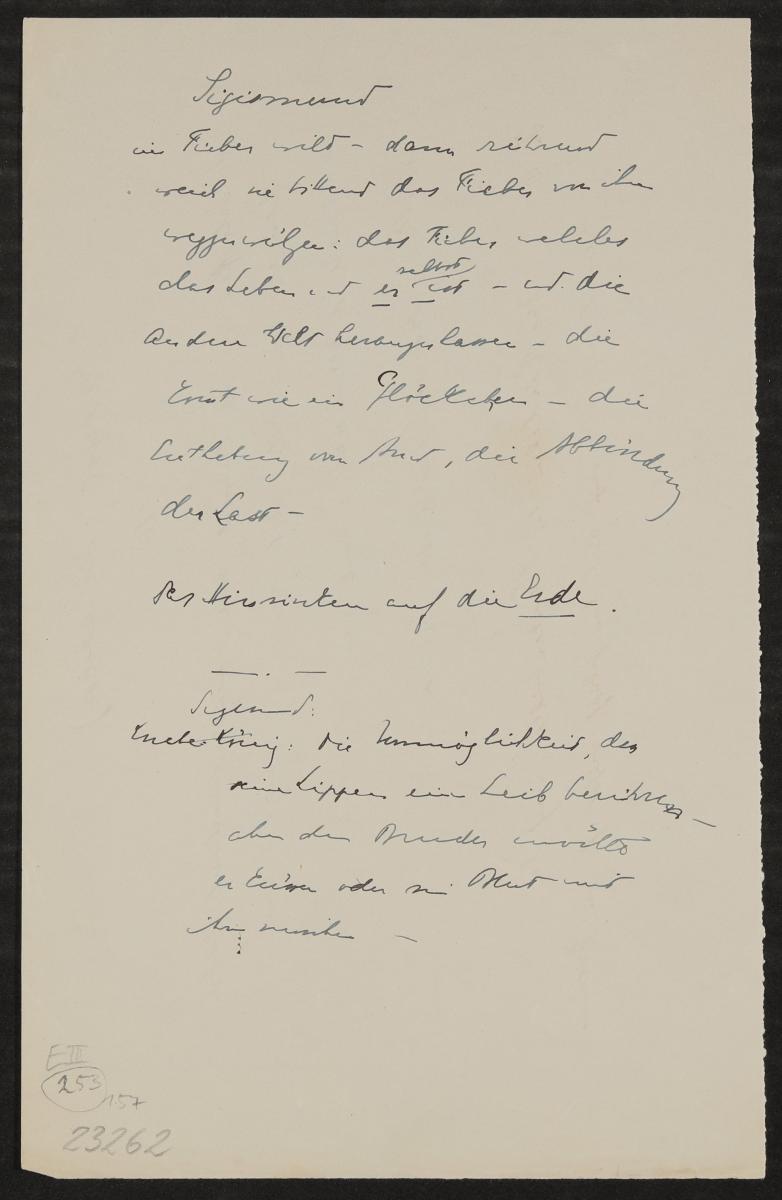 Sigismund
im Fieber wild – dann rührend
weich sie bittend das Fieber von ihm
wegzuwälzen: das Fieber welches
das Leben und er selbst ist – und die
andere Welt heranzulassen – die
Ernst wie ein Glöckchen – die
Enthebung vom , die Abbindung
der Last –
Das Hinsinken auf die Erde.
— . —
Sigismund:
Kinderkönig: die Unmöglichkeit, dass
seine Lippen ein Leib berühren –
aber den Bruder
er oder sein Blut mit
ihm mischen –
E III
253
157
23262